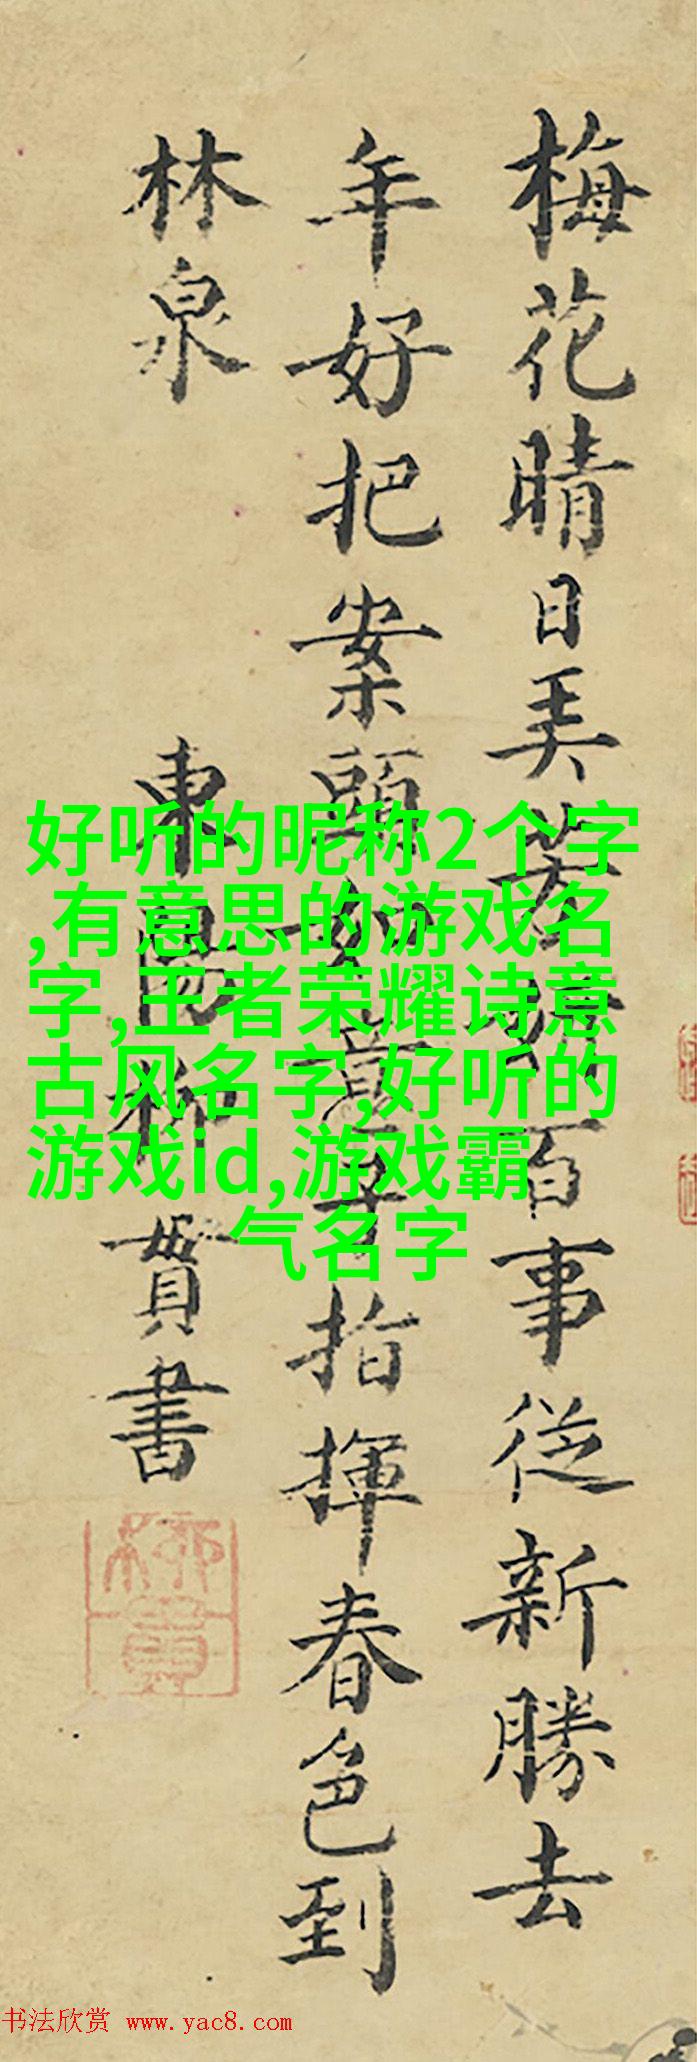 梅花晴日美　　　百事従新勝去
年好把案頭如意手指揮春色到
林泉
東陽柳貫書
柳貫
好听的昵称2个字
,有意思的游戏名
字,王者荣耀诗意
古风名字,好听的
游戏id,游戏霸
气名字
书法欣赏 www.yac8.com